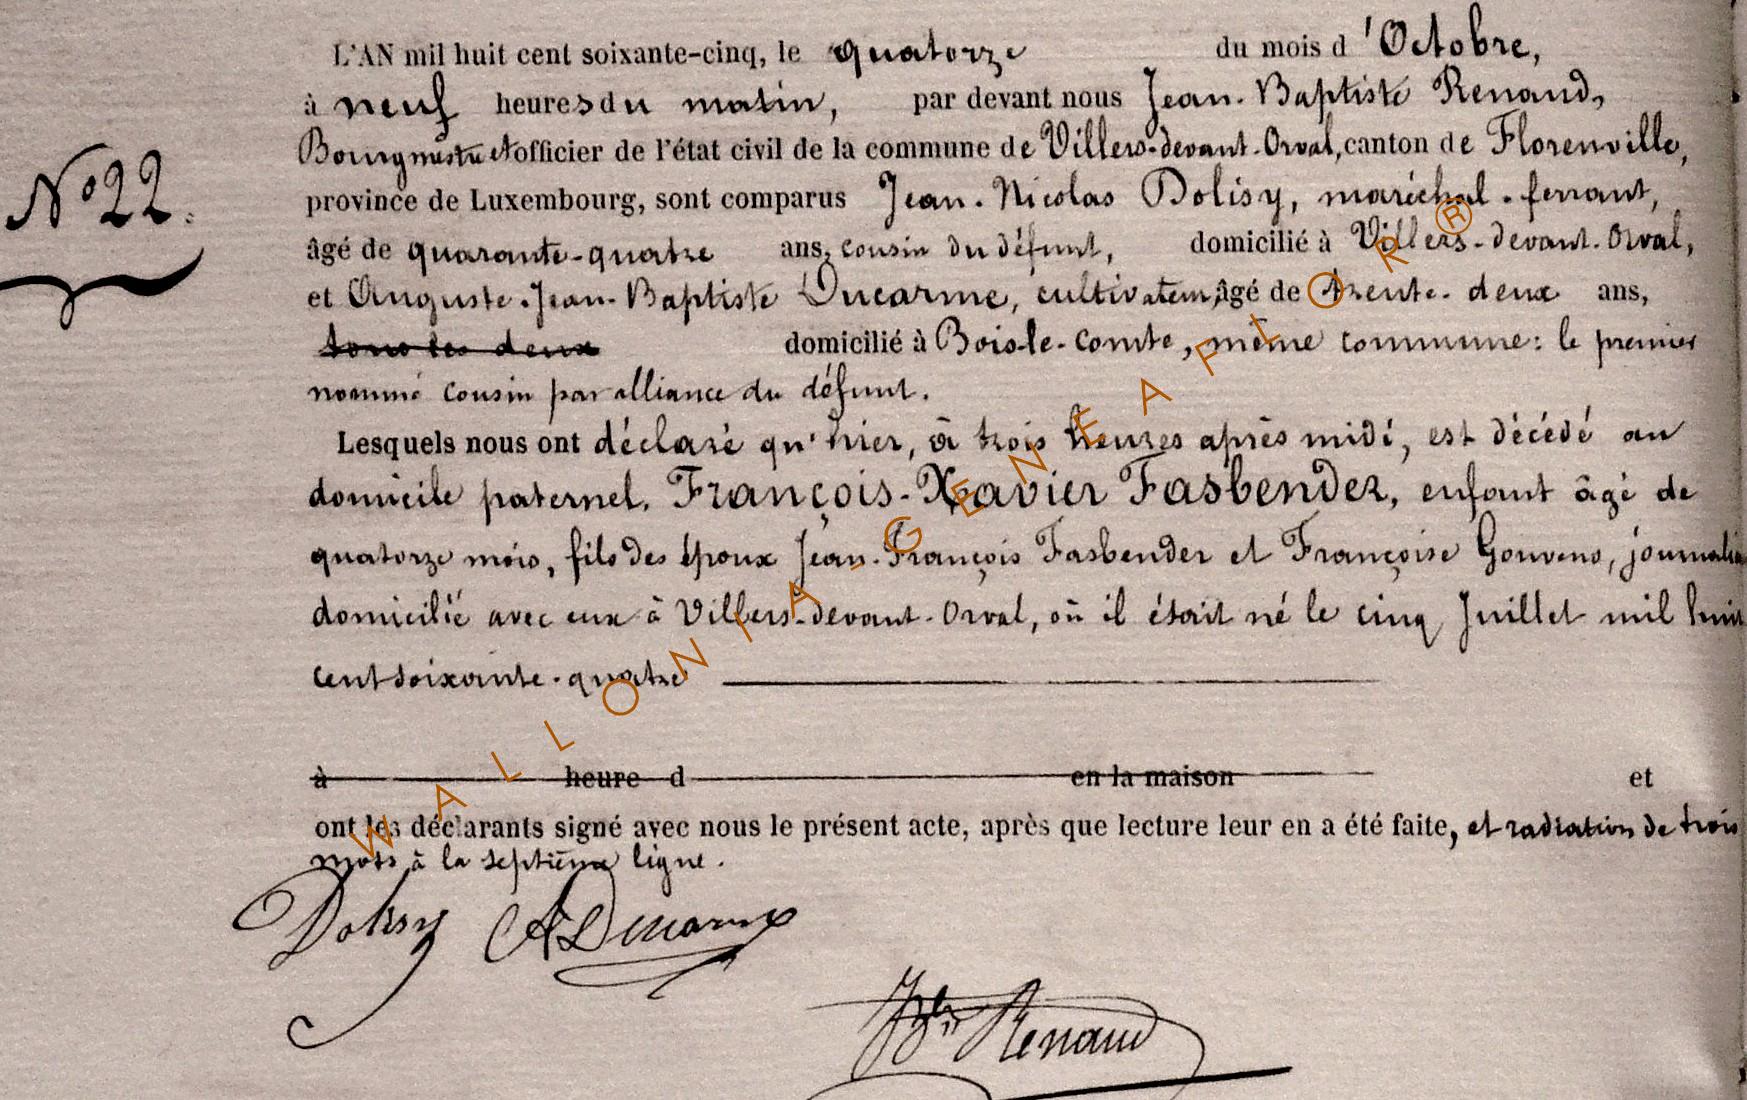 L'AN mil huit cent soixante-cinq, le quatorze du mois d'Octobre,
à neuf heures du matin, par devant nous Jean-Baptiste Renaud,
Bourgmestre et officier de l'état civil de la commune de Villers-devant-Orval, canton de Florenville,
N° 22.
province de Luxembourg, sont comparus Jean-Nicolas Dolisy, maréchal-ferrant,
âgé de quarante-quatre ans, cousin du défunt, domicilié à Villers-devant-Orval,
et Auguste-Jean-Baptiste Ducarme, cultivateur, âgé de trente-deux ans,
tous les deux domicilié à Bois-le-Comte, même commune: le premier
nommé cousin par alliance du défunt.
Lesquels nous ont déclaré qu'hier, à trois heures après midi, est décédé au
domicile paternel, François-Xavier Fasbender, enfant âgé de
quatorze mois, fils des époux Jean-François Fasbender et Françoise Gouveno,
domicilié avec eux à Villers-devant-Orval, où il était né le cinq Juillet mil huit
cent soixante-quatre
à heure d en la maison et
ont les déclarants signé avec nous le présent acte, après que lecture leur en a été faite, et radiation de trois
mots à la septième ligne.
Dolisy ADucarme
JBte Renaud
WALLONIA-GENEAFLOR®